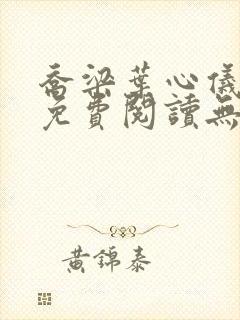 喬梁葉心儀
免費閱讀無
黃錦泰